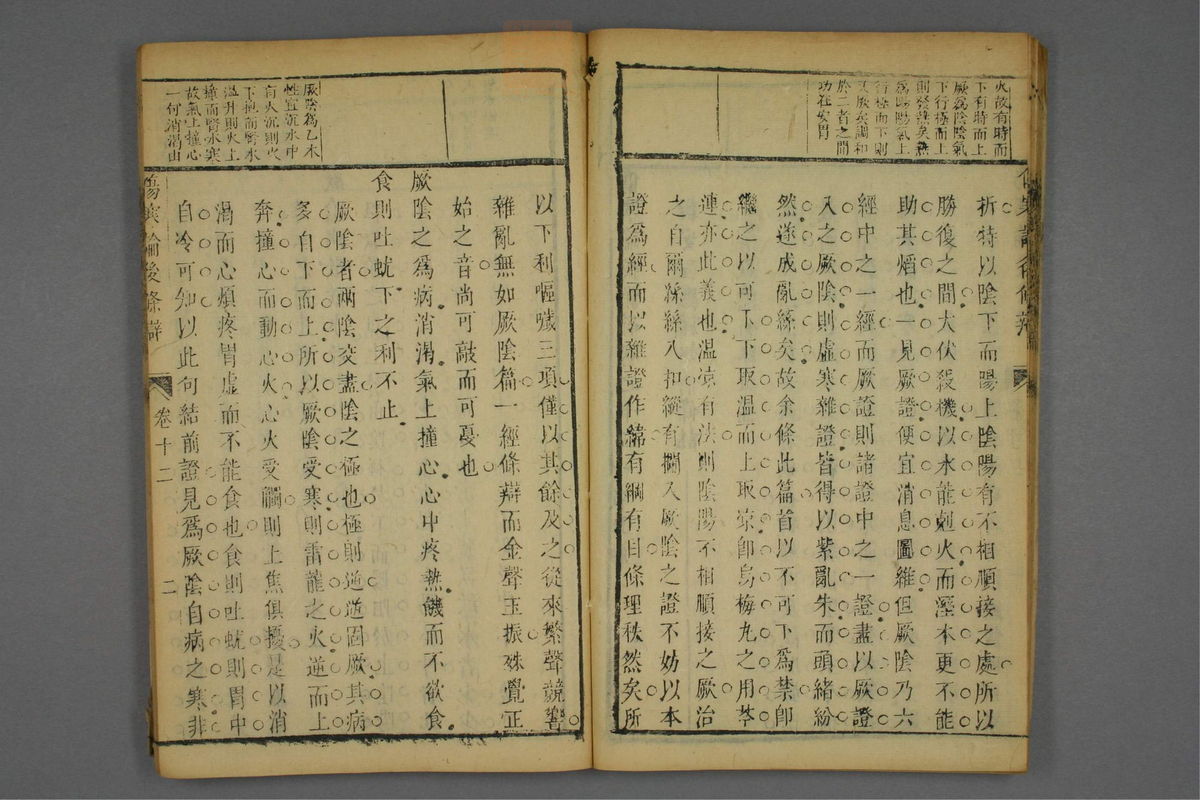 火故有時而
下有時而上
厥爲陰陰氣
下行極而上
則發熱矣熱
爲陽陽氣上
行極而下則
又厥矣調和
於二者之間
功在安胃
折特以陰下而陽上陰陽有不相順接之處所以
勝復之間大伏殺機以水能剋火而溼本更不能
助其熖也一見厥證便宜消息圖維但厥陰乃六
經中之一經而厥證則諸證中之一證盡以厥證
入之厥陰則虛寒雜證皆得以紫亂朱而頭緒紛
然遂成亂絲矣故余條此篇首以不可下爲禁卽
繼之以可下下取溫而上取凉卽烏梅丸之用苓
連亦此義也溫凉有法則陰陽不相順接之厥治
之自爾絲絲入扣縱有闌入厥陰之證不妨以本
證爲經而以雜證作緯有綱有目條理秩然矣所
以下利嘔噦三項僅以其餘及之從來繁聲競響
雜亂無如厥陰篇一經條辯而金聲玉振殊覺正
始之音尚可敲而可憂也
厥陰之爲病消渴氣上撞心心中疼熱饑而不欲食
食則吐蚘下之利不止
厥陰者兩陰交盡陰之極也極則逆逆固厥其病
多自下而上所以厥陰受寒則雷龍之火逆而上
奔撞心而動心火心火受觸則上焦俱擾是以消
渴而心煩疼胃虛而不能食也食則吐蚘則胃中
自冷可知以此句結前證見爲厥陰自病之寒非
厥陰爲乙木
性宜沉水中
有火沉則火
下抱而腎水
溫升則火上
撞而腎水寒
故氣上撞心
一何消渴由
傷寒論後條辯
卷十二
二